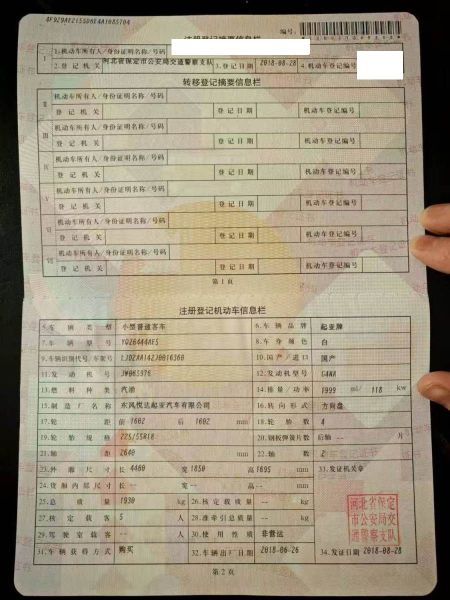 注册登记摘要信息栏
编号:
Ⅰ 1.机动车所有人/身份证明名称/号码
2.登记机关 河北省保定市公安局交通警察支队 3.登记日期 2018-08-28 4.机动车登记编号
转移登记摘要信息栏
Ⅱ 机动车所有人/身份证明名称/号码
登记机关 登记日期 机动车登记编号
Ⅲ 机动车所有人/身份证明名称/号码
登记机关 登记日期 机动车登记编号
Ⅳ 机动车所有人/身份证明名称/号码
登记机关 登记日期 机动车登记编号
Ⅴ 机动车所有人/身份证明名称/号码
登记机关 登记日期 机动车登记编号
Ⅵ 机动车所有人/身份证明名称/号码
登记机关 登记日期 机动车登记编号
Ⅶ 机动车所有人/身份证明名称/号码
登记机关 登记日期 机动车登记编号
第1页
注册登记机动车信息栏
5.车辆类型 小型普通客车 6.车辆品牌 起亚牌
7.车辆型号 YQZ6444AE5 8.车身颜色 白
9.车辆识别代号/车架号 LJDZAA14ZJ0016360 10.国产/进口 国产
11.发动机号 JW065976 12.发动机型号 G4NA
13.燃料种类 汽油 14.排量/功率 1999 ml/ 118 kw
15.制造厂名称 东风悦达起亚汽车有限公司 16.转向形式 方向盘
17.轮距 前 1602 后 1602 mm 18.轮胎数 4
19.轮胎规格 225/55R18 20.钢板弹簧片数 后轴 -- 片
21.轴距 2640 mm 22.轴数 2
23.外廓尺寸 长 4460 宽 1850 高 1695 mm 33.发证机关章
24.货厢内部尺寸 长 -- 宽 -- 高 -- mm
25.总质量 1930 kg 26.核定载质量 -- kg
27.核定载客 5 人 28.准牵引总质量 -- kg
29.驾驶室载客 -- 人 30.使用性质 非营运
31.车辆获得方式 购买 32.车辆出厂日期 2018-06-26 34.发证日期 2018-08-28
河北省保定
市公安局交
通警察支队
第2页